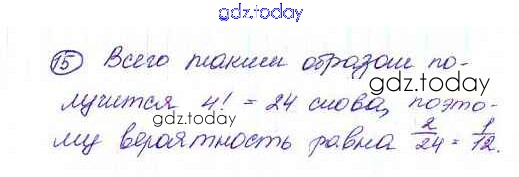 gdz.today
15 Всего таким образом по-
лучится 4! = 24 слова, поэто-
gdz.today
му вероятность равна 2/24 = 1/12.
gdz.today